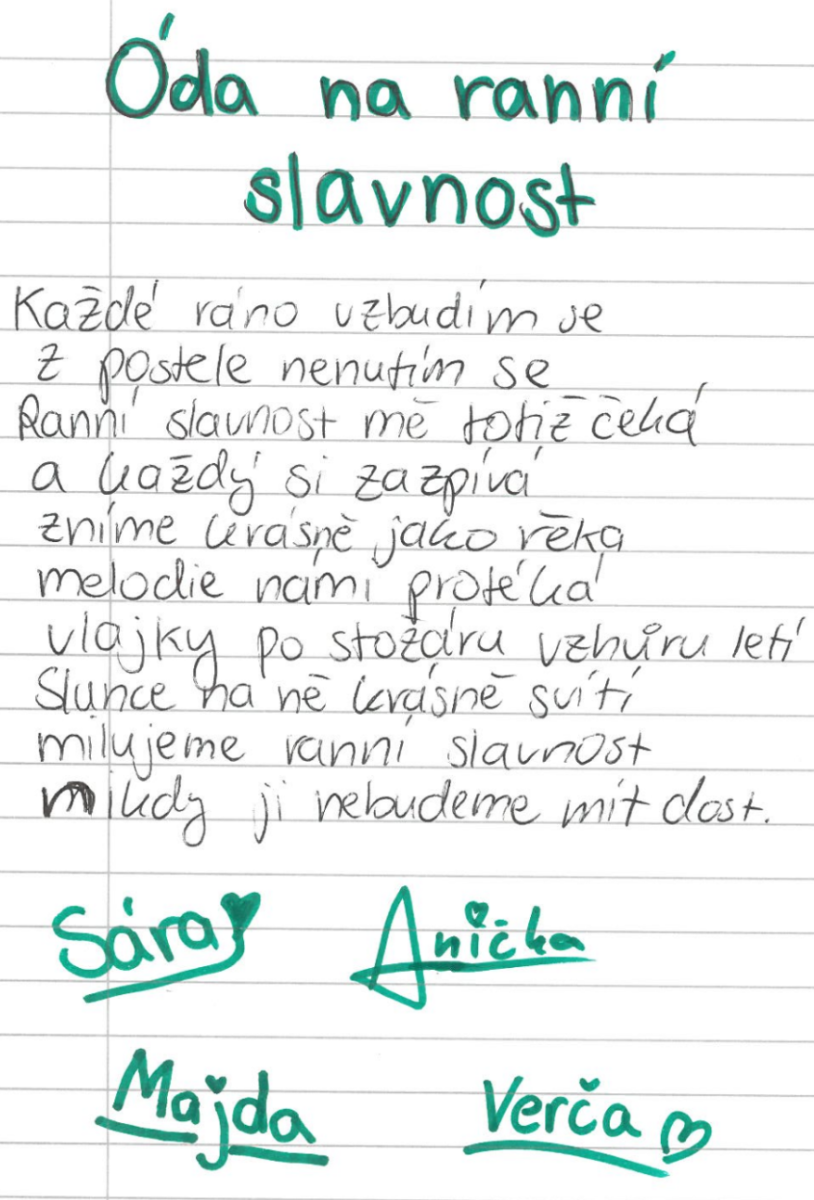 Óda na ranní
slavnost
Každé ráno vzbudím se
z postele nenutím se
Ranní slavnost mě totiž čeká
a každý si zazpívá
zníme krásně jako řěka
melodie námi protéká
vlajky po stožáru vzhůru letí
Slunce na ně krásně svítí
milujeme ranní slavnost
nikdy ji nebudeme mít dost.
Sára
Anička
Majda
Verča